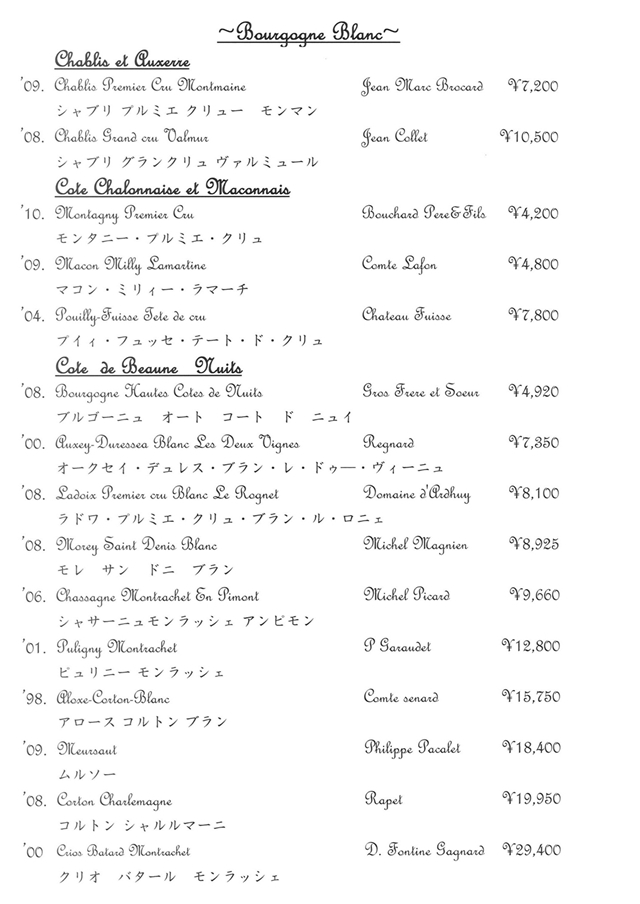 ~Bourgogne Blanc~
Chablis et Auxerre
'09. Chablis Premier Cru Montmaine Jean Marc Brocard ¥7,200
シャブリ プルミエ クリュー モンマン
'08. Chablis Grand cru Valmur Jean Collet ¥10,500
シャブリ グランクリュ ヴァルミュール
Cote Chalonnaise et Maconnais
'10. Montagny Premier Cru Bouchard Pere&Fils ¥4,200
モンタニー・プルミエ・クリュ
'09. Macon Milly Lamartine Comte Lafon ¥4,800
マコン・ミリィー・ラマーチ
'04. Pouilly-Fuisse Tete de cru Chateau Fuisse ¥7,800
プイィ・フュッセ・テート・ド・クリュ
Cote de Beaune Nuits
'08. Bourgogne Hautes Cotes de Nuits Gros Frere et Soeur ¥4,920
ブルゴーニュ オート コート ド ニュイ
'00. Auxey-Duressea Blanc Les Deux Vignes Regnard ¥7,350
オークセイ・デュレス・ブラン・レ・ドゥー・ヴィーニュ
'08. Ladoix Premier cru Blanc Le Rognet Domaine d'Ardhuy ¥8,100
ラドワ・プルミエ・クリュ・ブラン・ル・ロニェ
'08. Morey Saint Denis Blanc Michel Magnien ¥8,925
モレ サン ドニ ブラン
'06. Chassagne Montrachet En Pimont Michel Picard ¥9,660
シャサーニュモンラッシェ アンピモン
'01. Puligny Montrachet P Garaudet ¥12,800
ピュリニー モンラッシェ
'98. Aloxe-Corton-Blanc Comte senard ¥15,750
アロース コルトン ブラン
'09. Meursaut Philippe Pacalet ¥18,400
ムルソー
'08. Corton Charlemagne Rapet ¥19,950
コルトン シャルルマーニ
'00 Crios Batard Montrachet D. Fontine Gagnard ¥29,400
クリオ バタール モンラッシェ